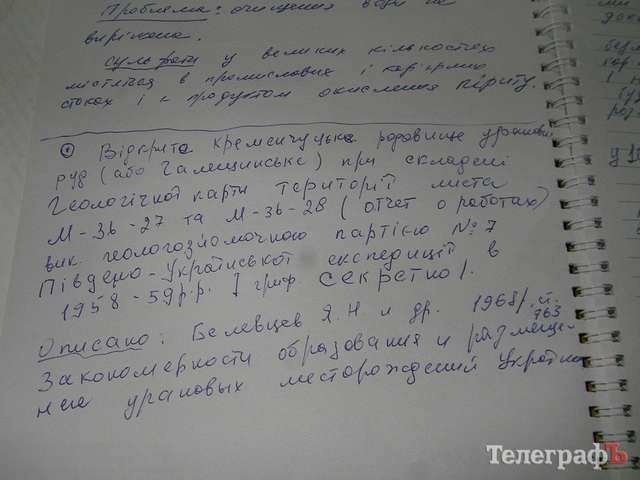 Проблема: очищення води не
вирішена.
Сульфати у великих кількостях
містяться в промислових і кар'єрних
стоках і є продуктом окислення піриту.
① Відкрите кременчуцьке родовище уранових
руд (або Галещинське) при складені
Геологічної карти території листа
М-36-27 та М-36-28 (отчет о работах)
вик. геологозйомочною партією № 7
Південо-Української експедиції в
1958-59 р.р. гриф. секретно).
Описано: Белевцев Я.Н. и др. 1968г.
963
Закономерности образования и размеще-
ние урановых месторождений Украины
ТелеграфЪ